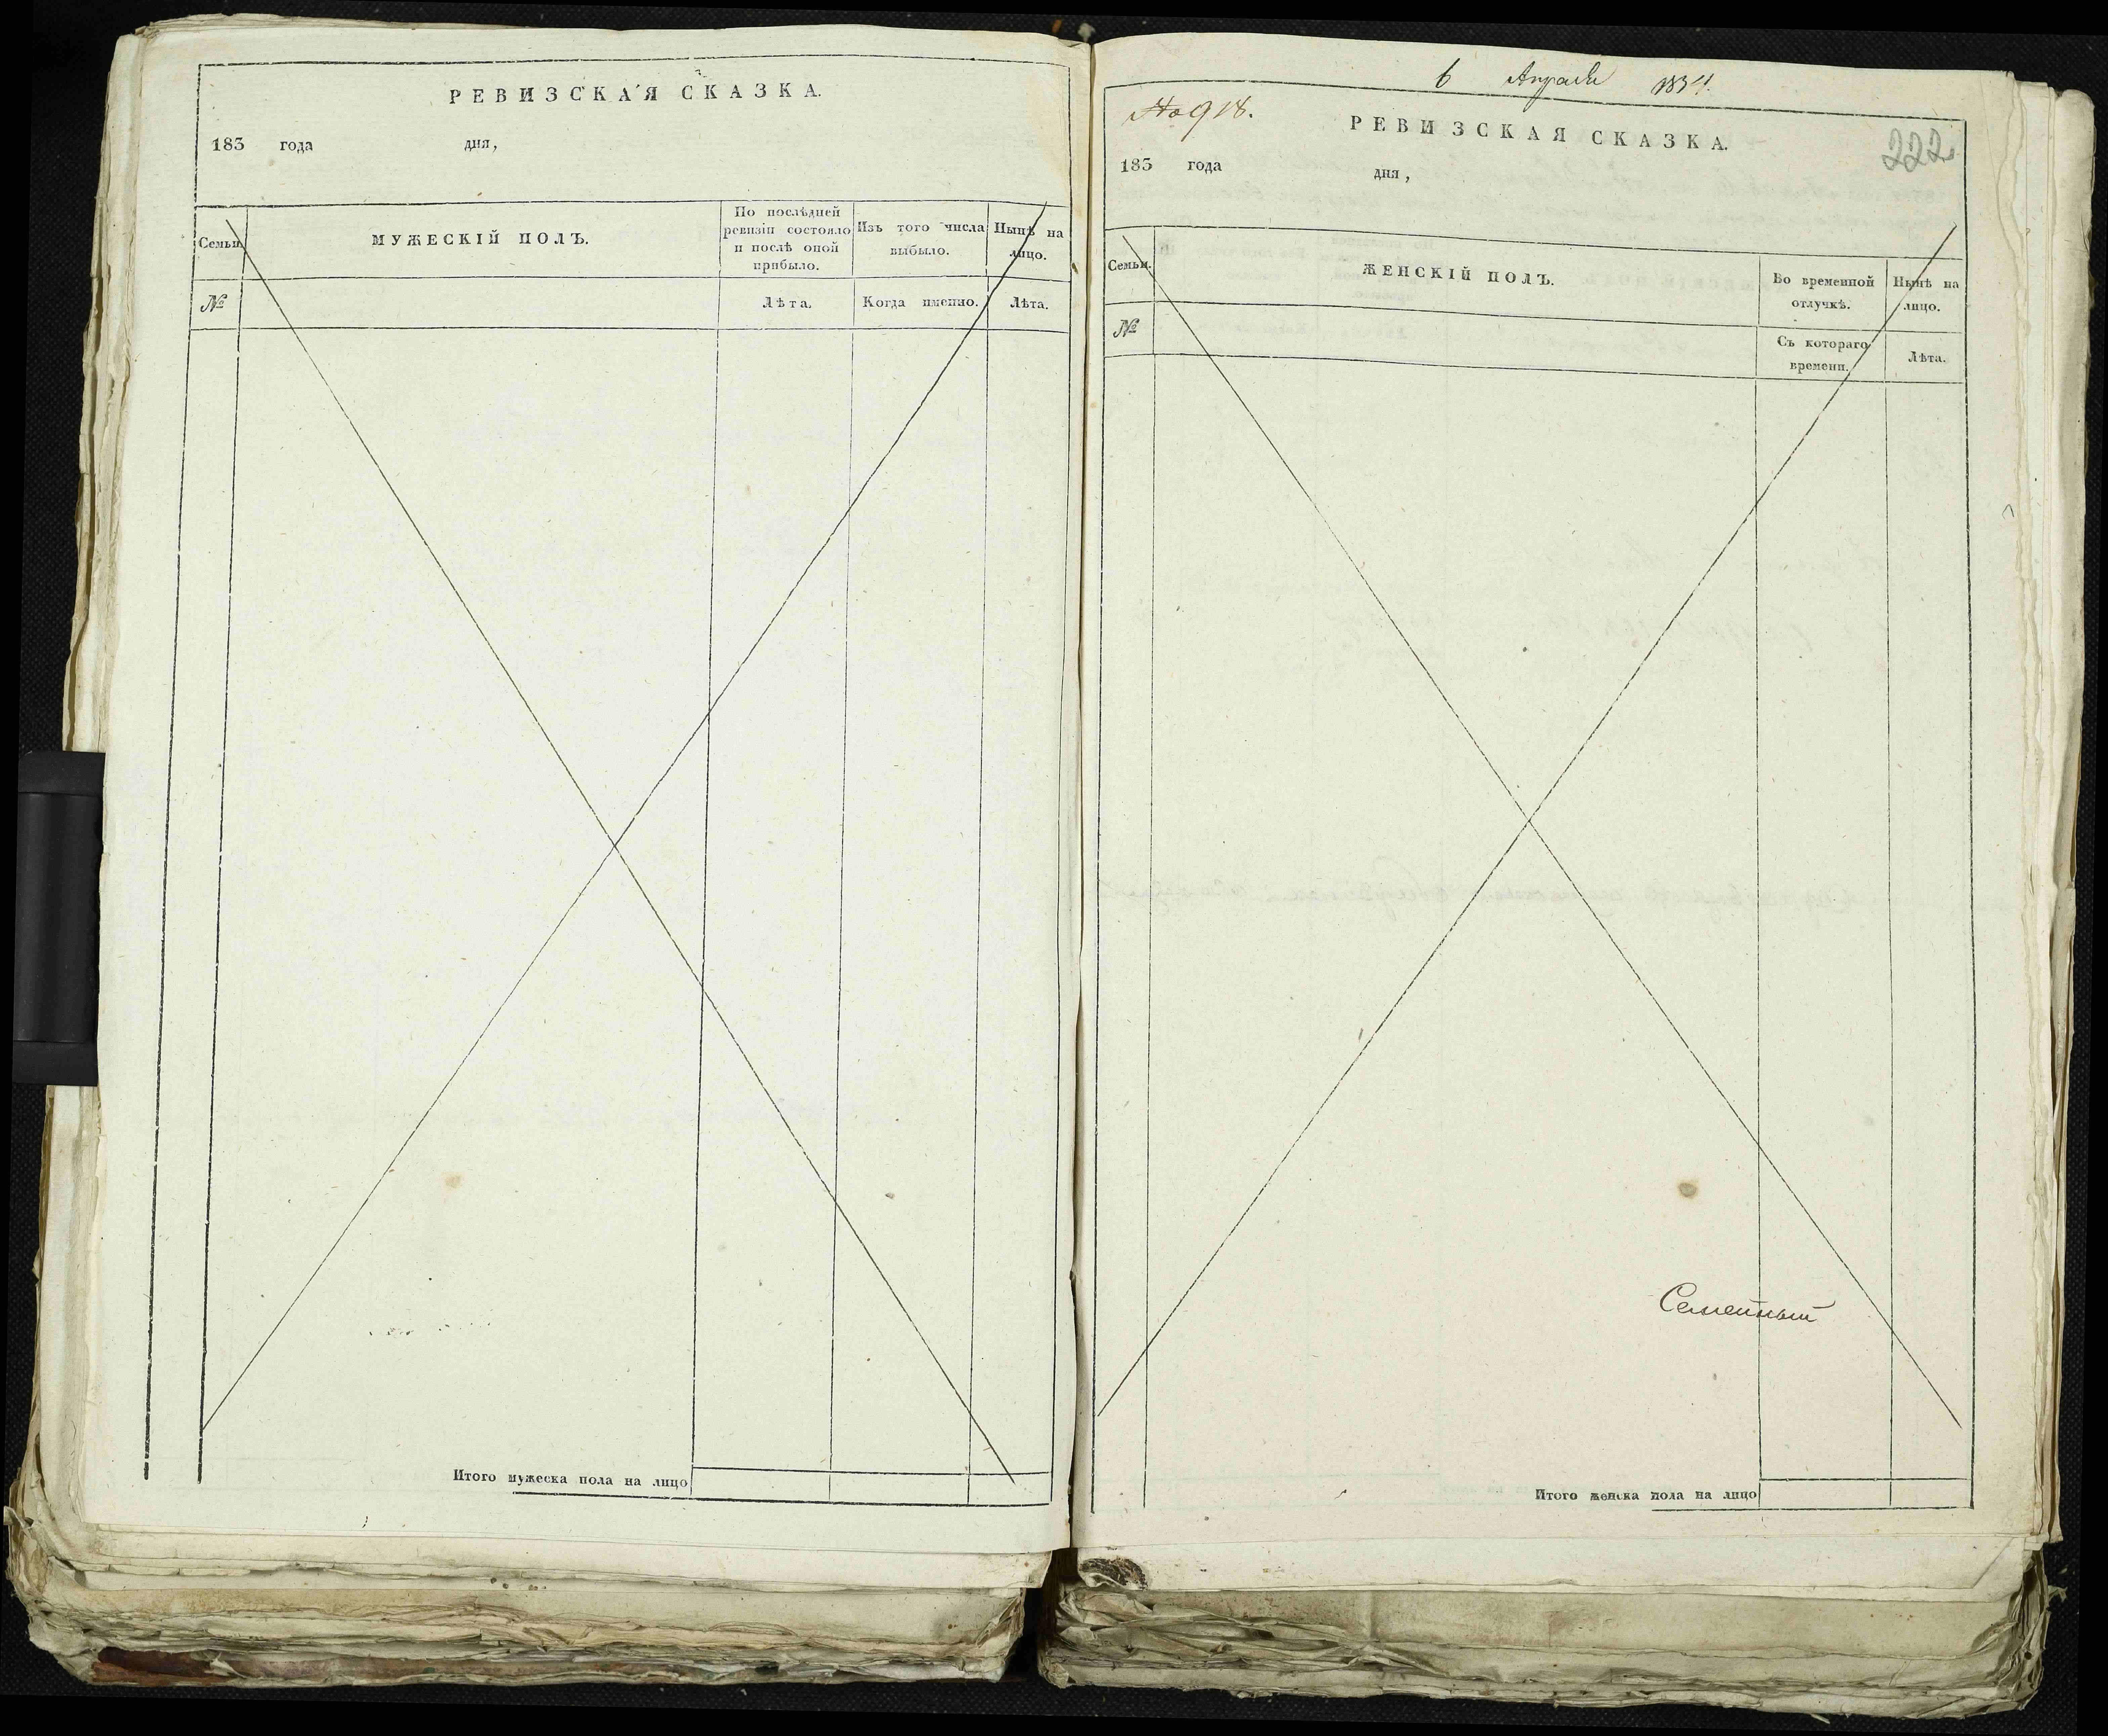 РЕВИЗСКАЯ СКАЗКА.
183 года дня,
Семьи.
МУЖЕСКІЙ ПОЛЪ.
По послѣдней ревизіи состояло и послѣ оной прибыло.
Изъ того числа выбыло.
Нынѣ на лицо.
№
Лѣта.
Когда именно.
Лѣта.
Итого мужеска пола на лицо
6 Апреля 1834.
№ 918.
РЕВИЗСКАЯ СКАЗКА.
222
183 года дня,
Семьи.
ЖЕНСКІЙ ПОЛЪ.
Во временной отлучкѣ.
Нынѣ на лицо.
№
Съ котораго времени.
Лѣта.
Итого женска пола на лицо